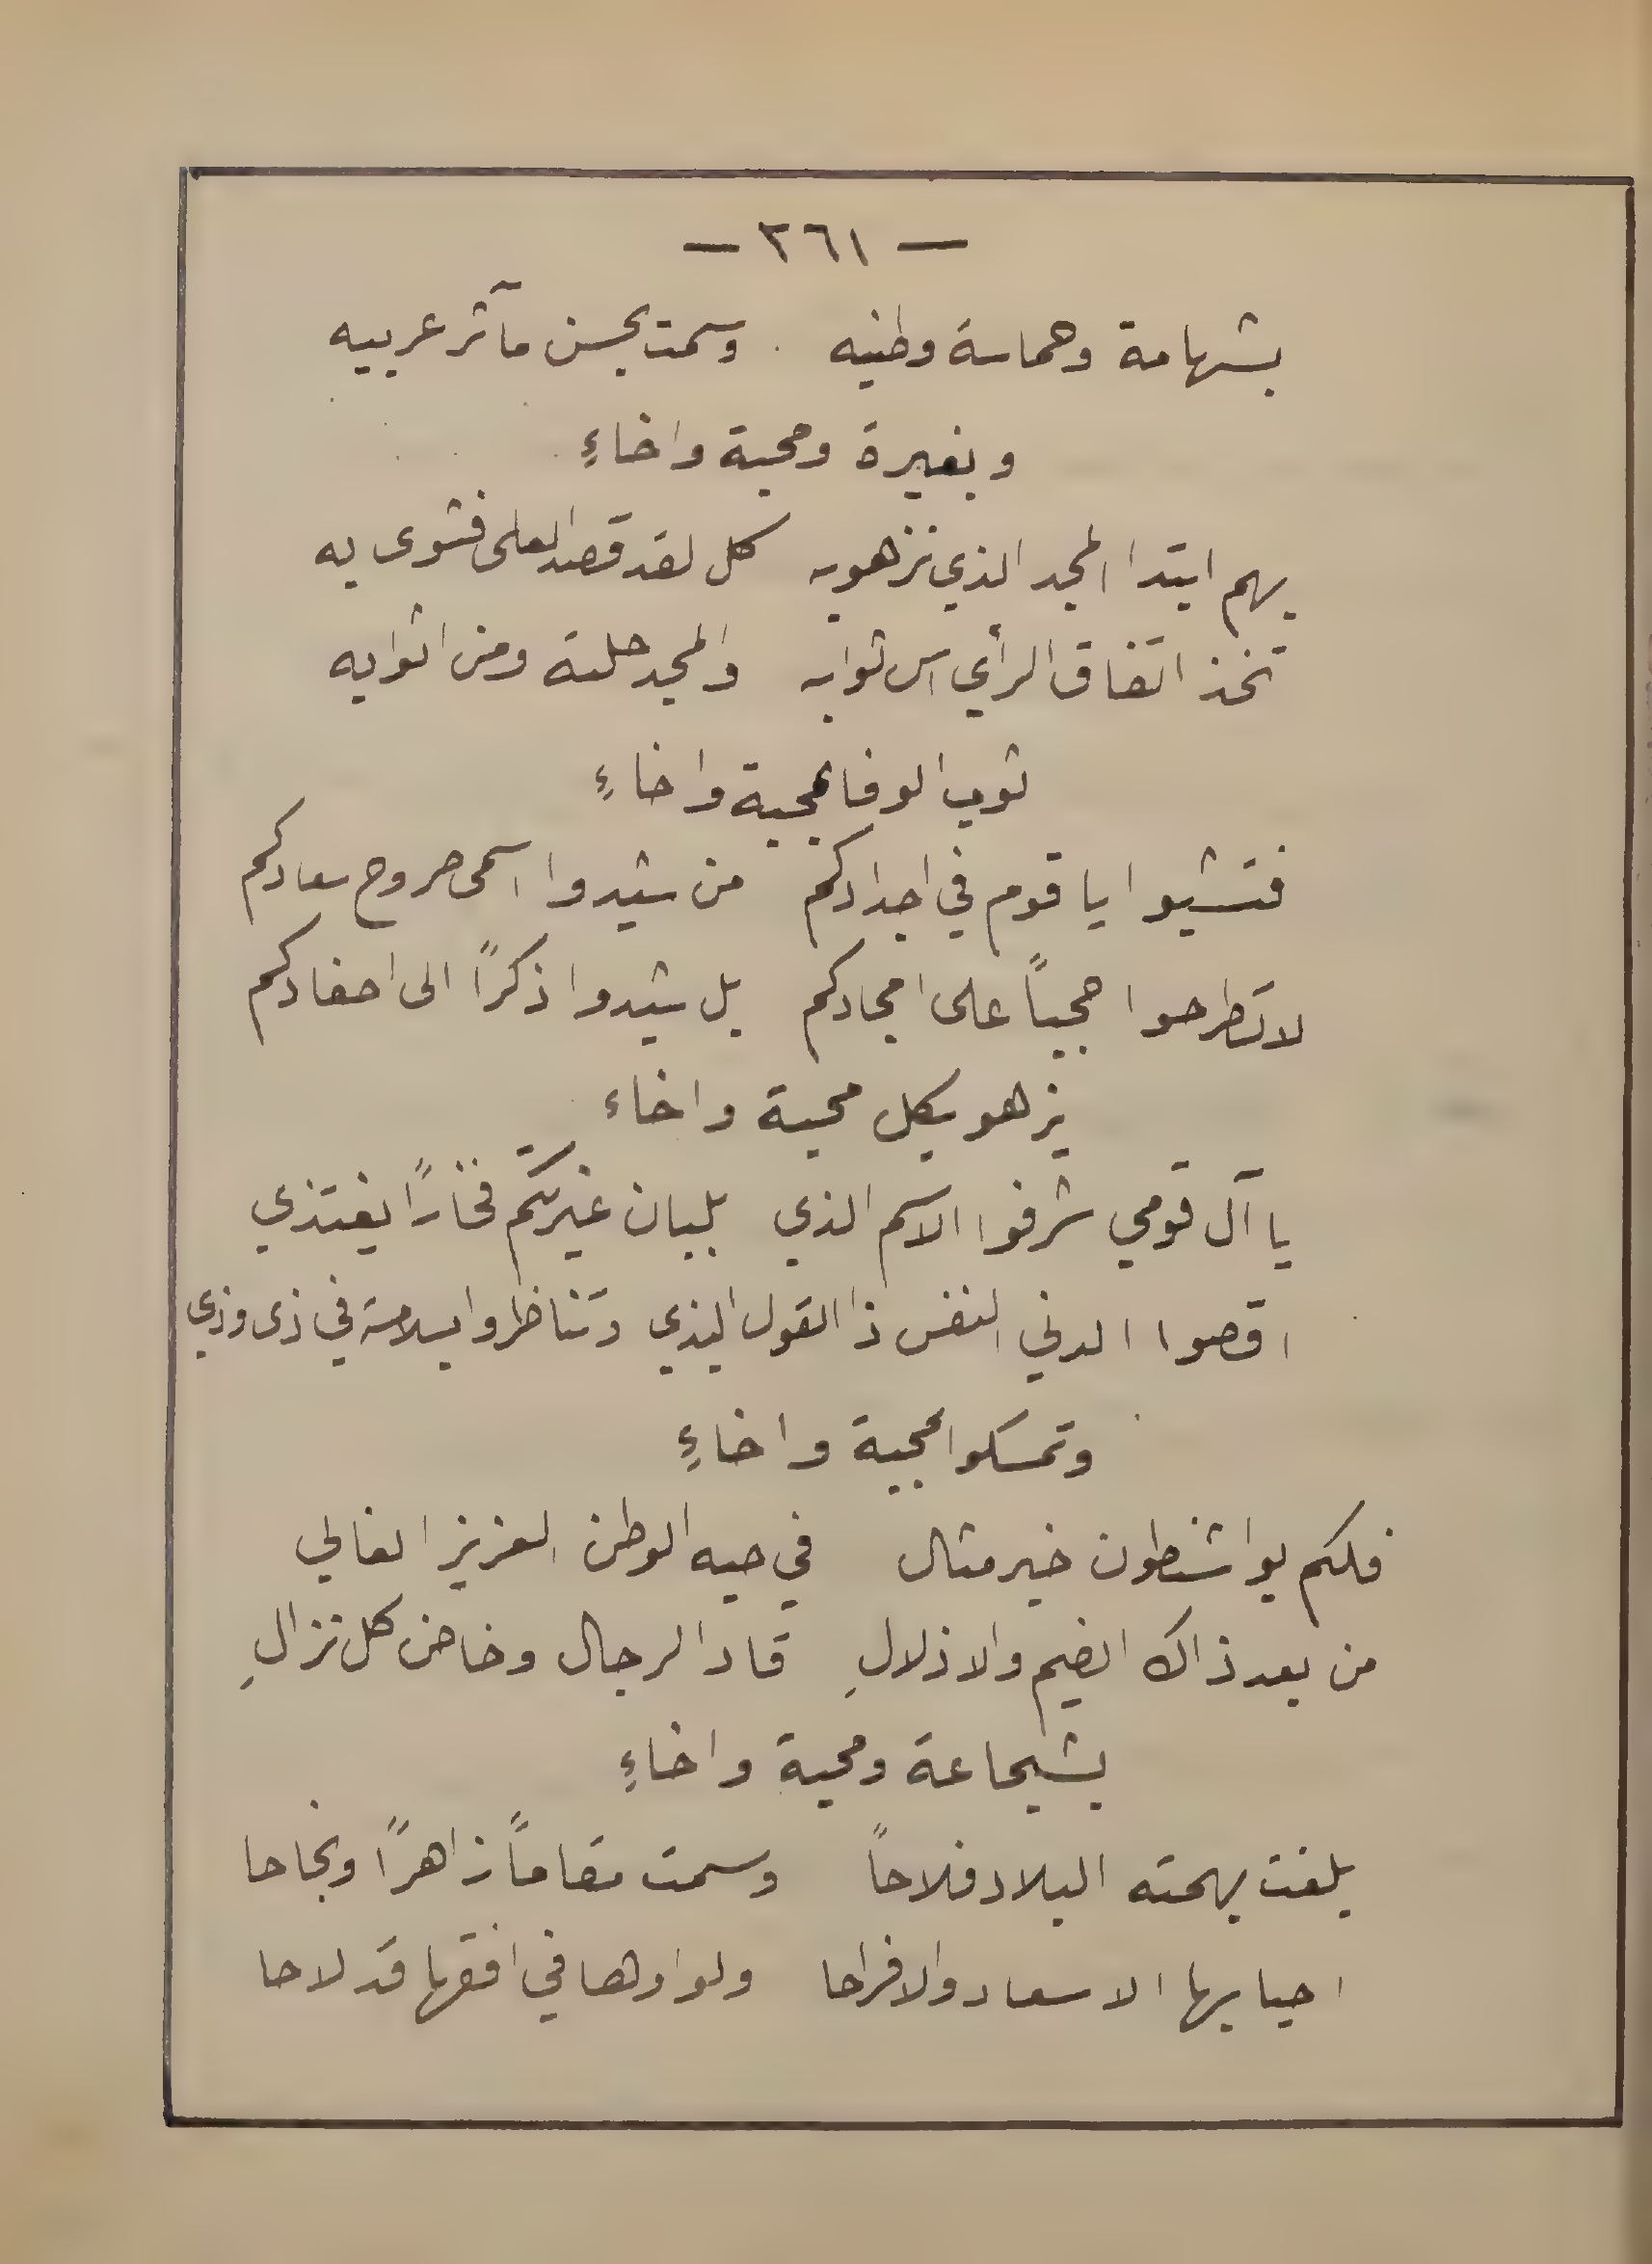 — ٣٦١ —
بشهامة وحماسة وطنيه وسمت بحسن مآثر عربيه
وبغيرة ومحبة واخاءِ
بهم ابتدا المجد الذي نزهو به كل لقد قصد العلى فثوى به
تخذ اتفاق الرأي اس ثوابه والمجد حلته ومن اثوابه
ثوب الوفا بمحبة واخاءِ
فتشبهوا يا قوم في اجدادكم من شيدوا اسمى صروح سعادكم
لا تطرحوا حجباً على امجادكم بل شيدوا ذكراً الى احفادكم
يزهو بكل محبة واخاء
يا آل قومي شرفوا الاسم الذي بلبان غيرتكم فخاراً يغتذي
اقصوا الدني النفس ذا القول البذي وتناظروا بسلامة في ذى وذي
وتمسكوا بمحبة واخاءِ
فلكم بواشنطون خير مثال في حبه الوطن العزيز الغالي
من بعد ذاك الضيم والاذلالِ قاد الرجال وخاض كل نزالِ
بشجاعة ومحبة واخاءِ
بلغت بهمته البلاد فلاحاً وسمت مقاماً زاهراً ونجاحا
احيا بها الاسعاد والافراحا ولواؤها في افقها قد لاحا